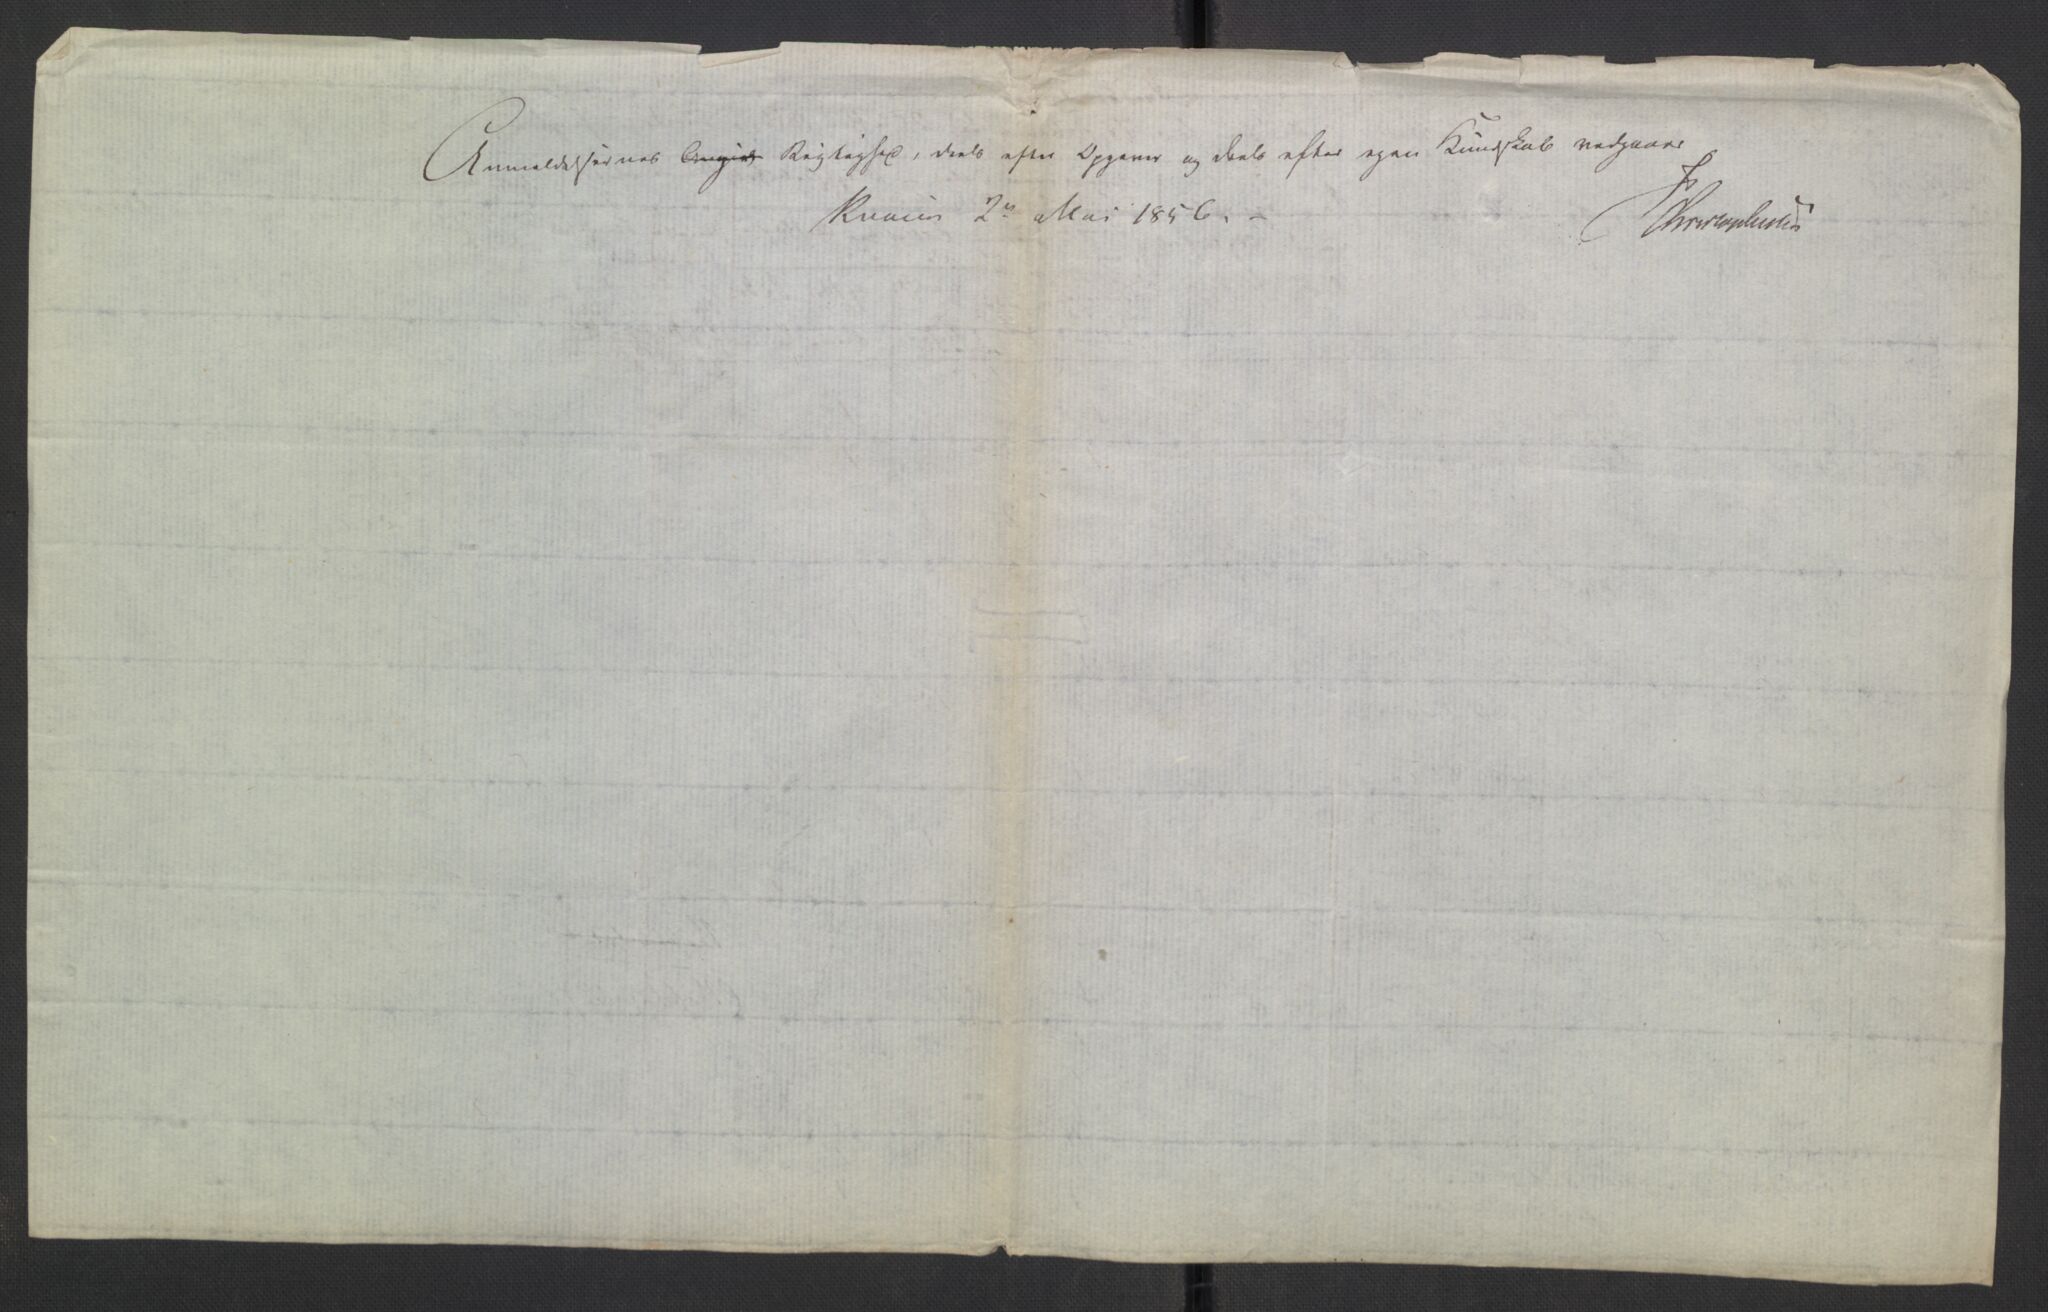 Anmeldelsernes Rigtighed, deels efter Opgaver og deels efter egen Kundskab vedgaaer
2en Mai 1856. -